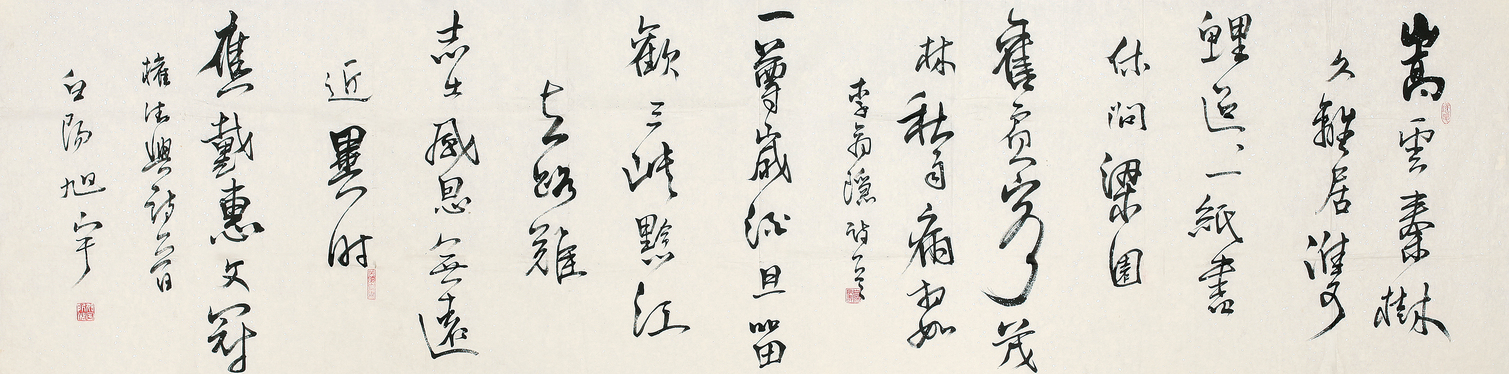 嵩雲秦樹
久離居雙
鯉迢迢一紙書
休問梁園
舊賓客茂
林秋雨病相如
李商隱詩
一尊歲酒且留
歡三峽黔江
去路難
志士感恩無遠
近異時
應戴惠文冠
權德輿詩
白陽旭宇